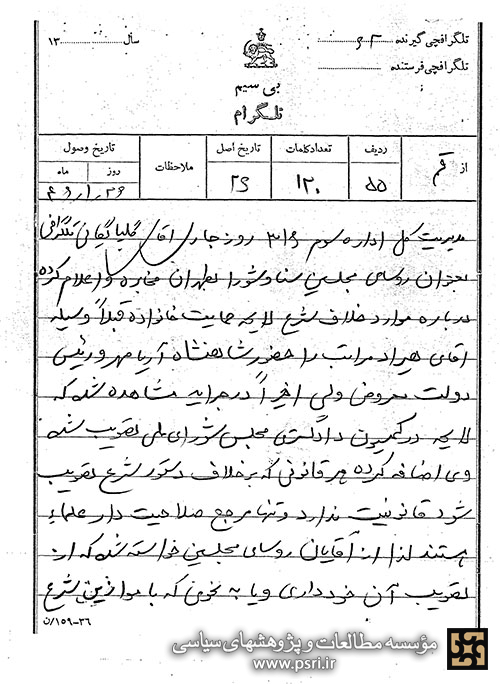 تلگرافچی گیرنده
سال ۱۳
تلگرافچی فرستنده
بی سیم
تلگرام
از قم
ردیف ۵۵
تعداد کلمات ۱۲۰
تاریخ اصل ۲۶
ملاحظات
تاریخ وصول
روز ماه
مدیریت کل اداره سوم ۳۱۶ روز جاری آقای گلپایگانی تلگرافی
بعنوان روسای مجلسین سنا و شورا بطهران مخابره و اعلام کرده
درباره موارد خلاف شرع لایحه حمایت خانواده قبلاً وسیله
آقای هیراد مراتب را حضور شاهنشاه آریامهر و رئیس
دولت معروض ولی اخیراً در جراید مشاهده شد که
لایحه در کمیسیون دادگستری مجلس شورای ملی تصویب شده
وی اضافه کرده هر قانونی که برخلاف دستور شرع تصویب
شود قانونیت ندارد و تنها مرجع صلاحیت دار علماء
هستند لذا از آقایان روسای مجلسین خواسته شد که از
تصویب آن خودداری و یا به نحوی که با موازین شرع
۳۶-۱۵۹/ن
مؤسسه مطالعات و پژوهشهای سیاسی
www.psri.ir